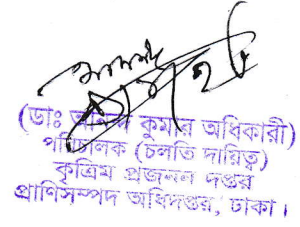 (ডাঃ আনন্দ কুমার অধিকারী)
পরিচালক (চলতি দায়িত্ব)
কৃত্রিম প্রজনন দপ্তর
প্রাণিসম্পদ অধিদপ্তর, ঢাকা।